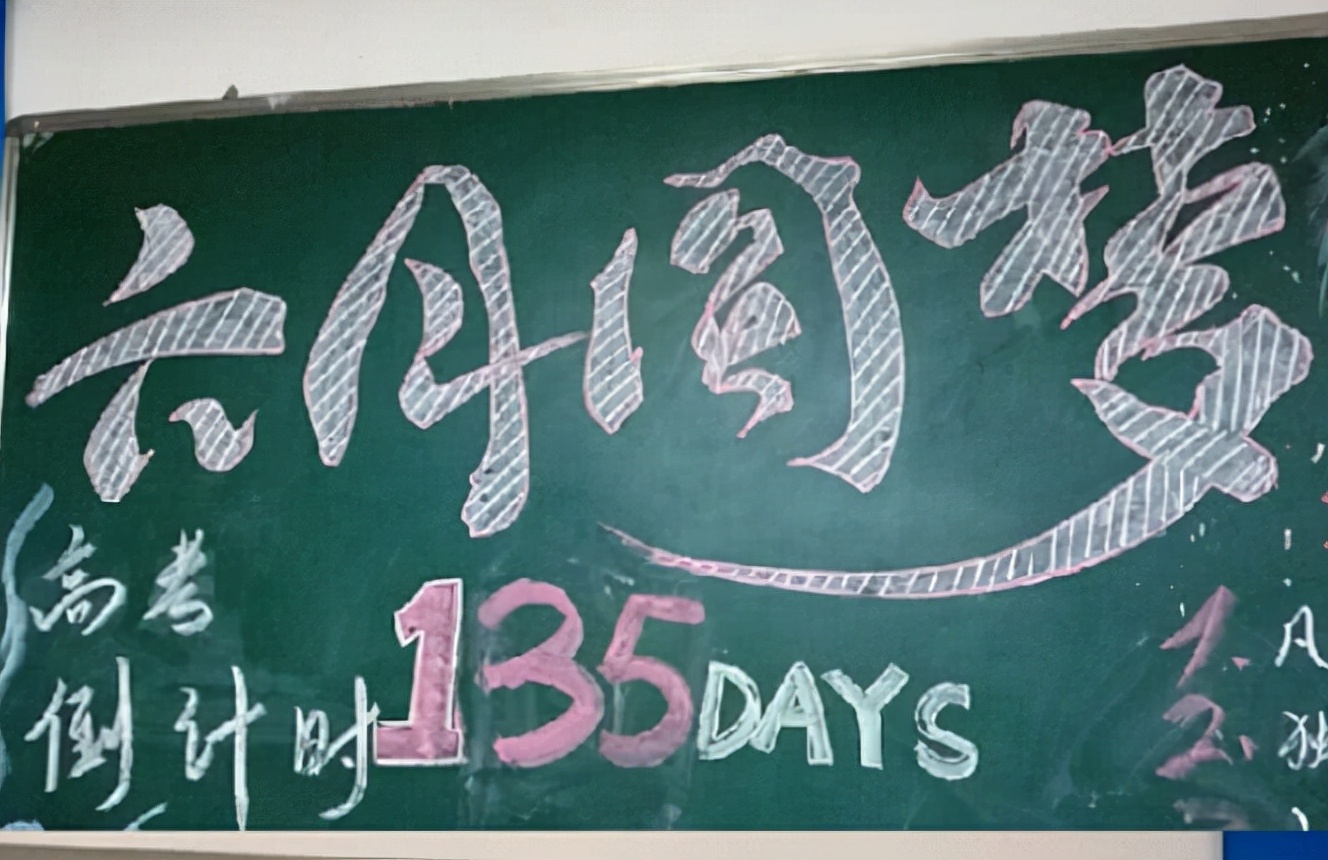 六月圆梦
高考
倒计时135DAYS
1.
2.